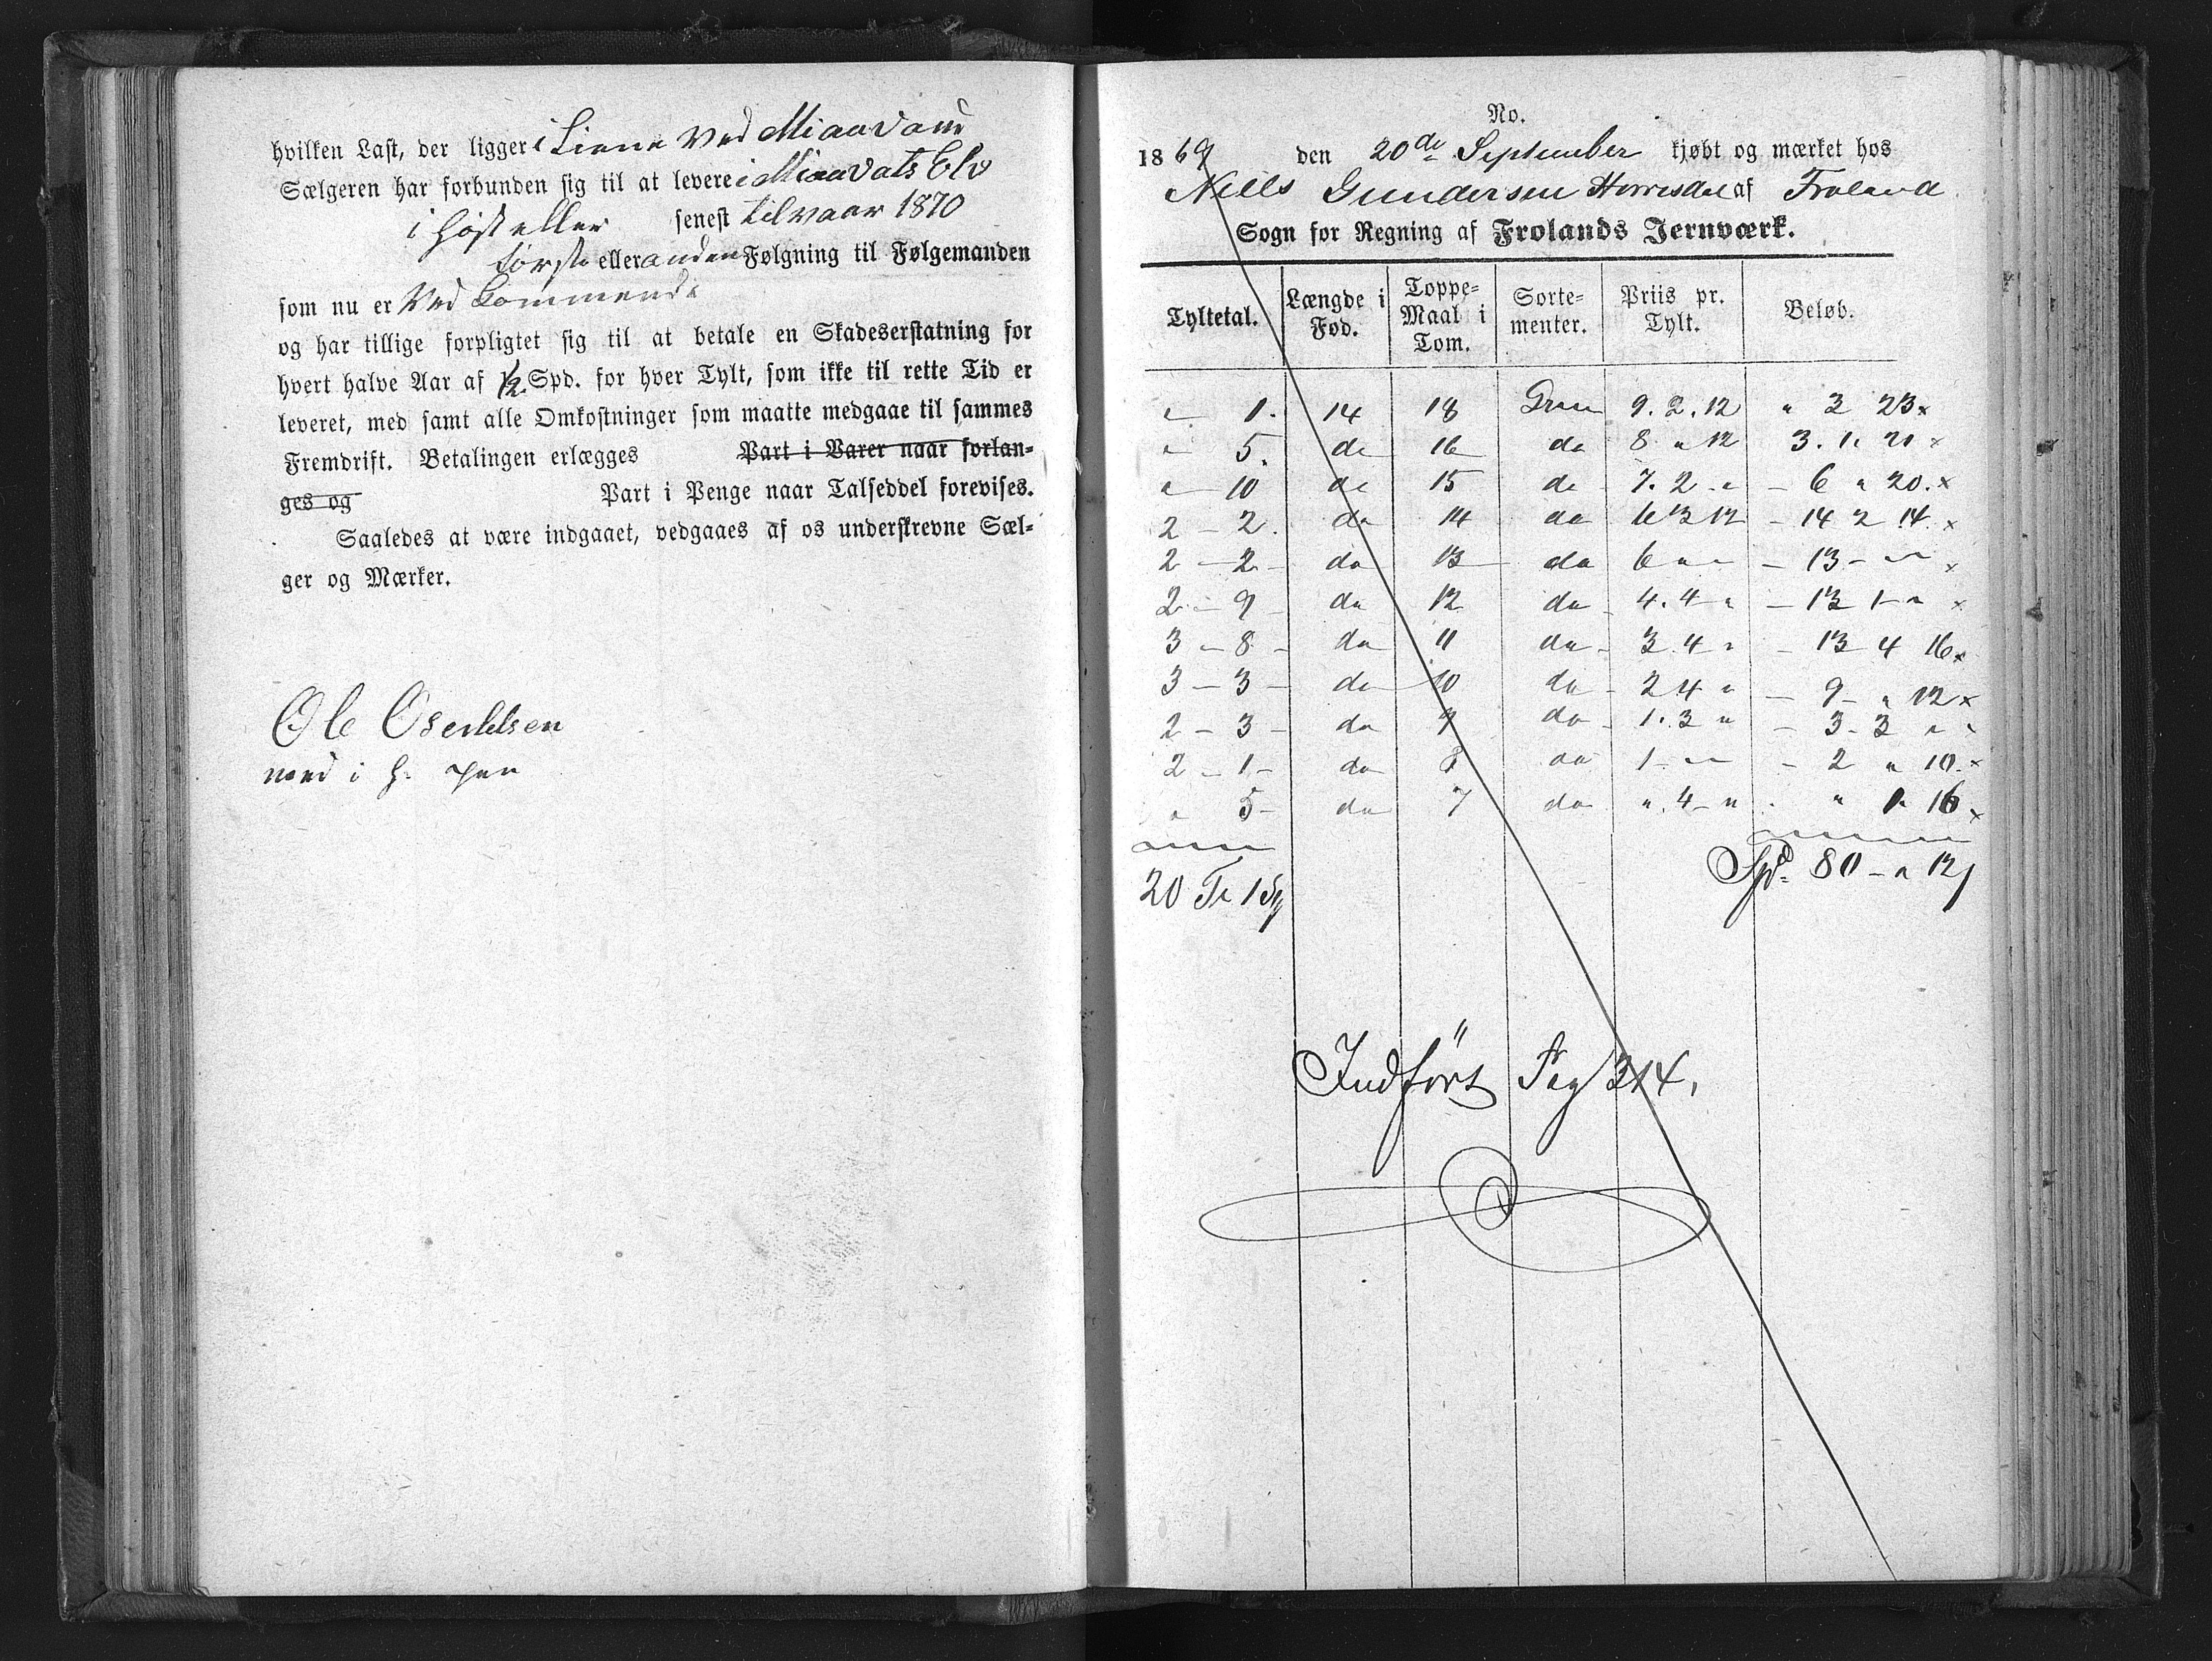 hvilken Last, der ligger i Liene Ved Miaavand
Sælgeren har forbunden sig til at levere i Miaavats Elv
i Høst eller senest til vaar 1870
første eller anden Følgning til Følgemanden
som nu er Ved Kommende
og har tillige forpligtet sig til at betale en Skadeserstatning for
hvert halve Aar af 1/2 Spd. for hver Tylt, som ikke til rette Tid er
leveret, med samt alle Omkostninger som maatte medgaae til sammes
Fremdrift. Betalingen erlægges Part i Varer naar forlan-
ges og Part i Penge naar Talseddel forevises.
Saaledes at være indgaaet, vedgaaes af os underskrevne Sæl-
ger og Mærker.
Ole Oseldsen
med i h. pen
No.
1869 den 20de September kjøbt og mærket hos
Niels Gundersen Herrisdal af Froland
Sogn for Regning af Frolands Jernværk.
Tyltetal. Længde i Fod. Toppe-Maal i Tom. Sorte-menter. Priis pr. Tylt. Beløb.
" 1. 14 18 Gran 9. 2. 12 " 3 23 x
" 5. do 16 do 8 " 12 3. 1. 21 x
" 10 do 15 do 7. 2 - " - 6 " 20. x
2 - 2. do 14 do 6 3 12 - 14 2 14. x
2 - 2 - do 13 do 6 " " - 13 - " " x
2 - 9 - do 12 do - 4. 4 " - 13 1 - " x
3 - 8 - do 11 do - 3. 4 " - 13 4 16 x
3 - 3 - do 10 do - 2 4 " - 9 - " 12 x
2 - 3 - do 9 do - 1. 3 " - 3 - 3 " "
2 - 1 - do 8 do 1 - " " - 2 " 10. x
" 5 - do 7 do " . 4 - " " 1. 16 x
20 Tr 1 St Spd. 80 - " 12 /
Indført Pag 314.